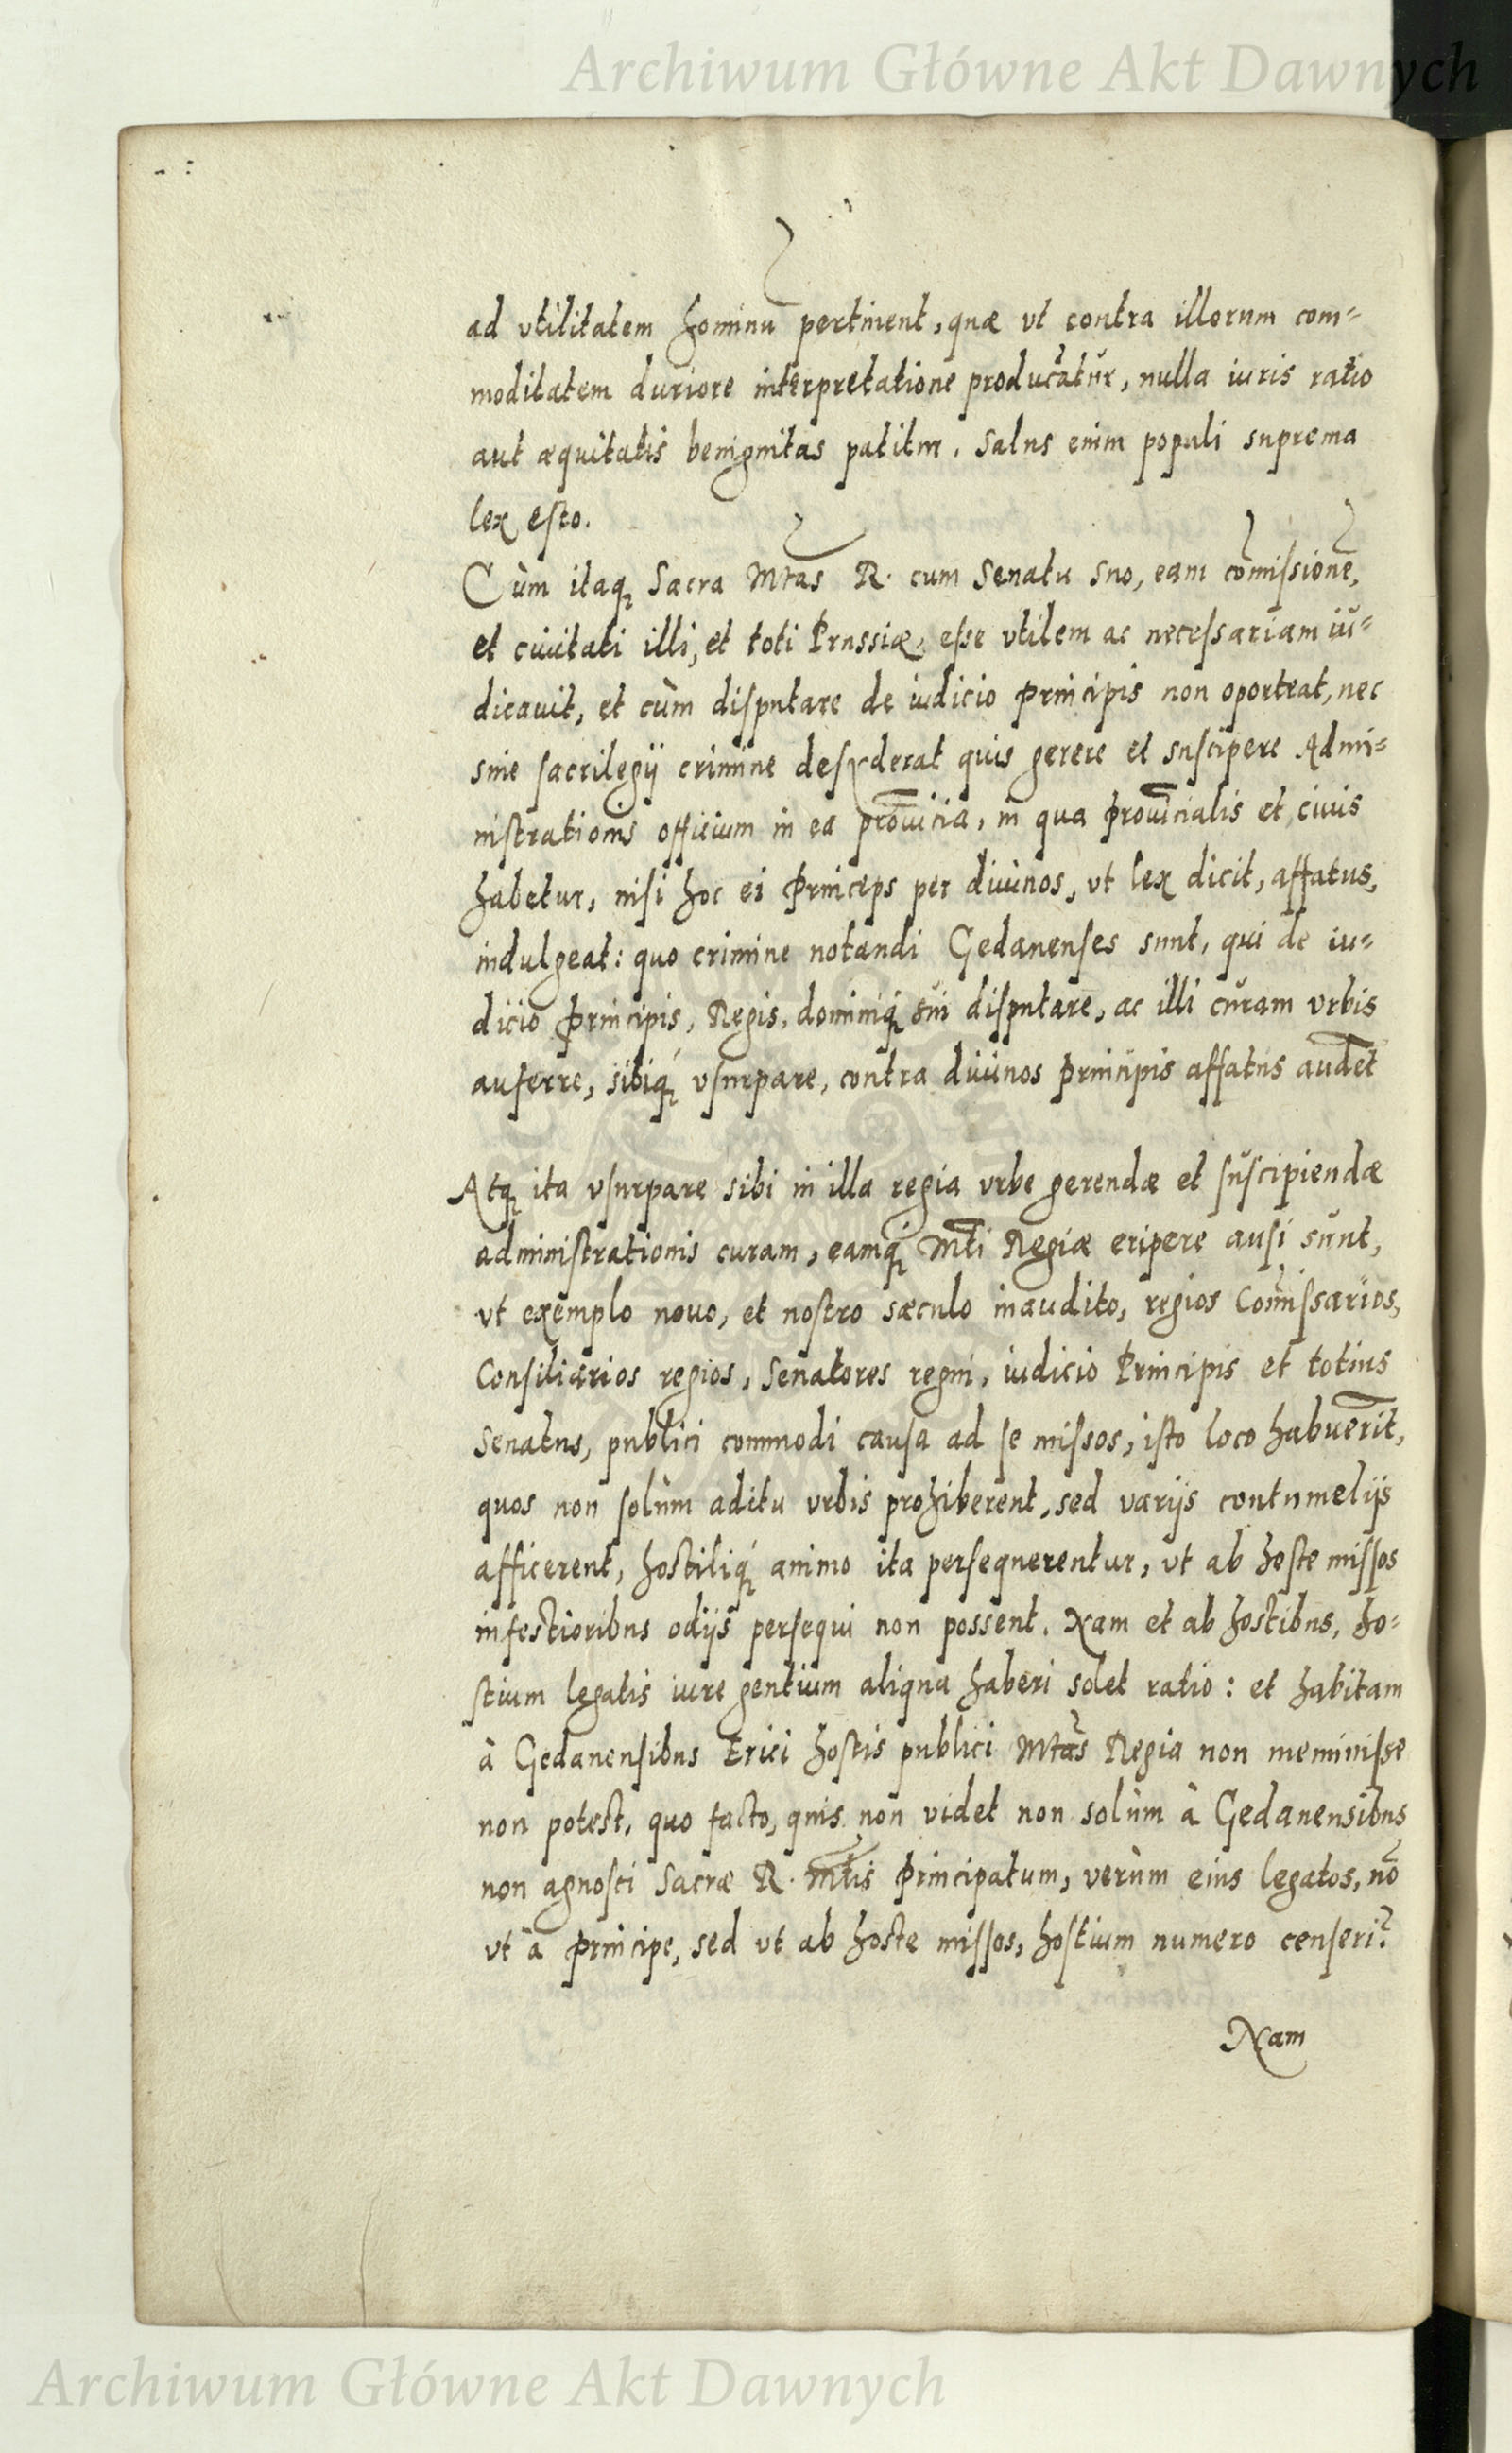 Archiwum Główne Akt Dawnych
ad vtilitatem hominū pertinent, quæ vt contra illorum com=
moditatem duriore interpretatione producātur, nulla iuris ratio
aut æquitatis benignitas patitur. Salus enim populi suprema
lex esto.
Cùm itaq₃ Sacra Mtas R. cum Senatu suo, eam com̄issionē,
et ciuitati illi, et toti Prussiæ, esse vtilem ac necessariam iu=
dicauit, et cùm disputare de iudicio Principis non oporteat, nec
sine sacrilegij crimine desyderat quis gerere et suscipere Admi=
nistrationis officium in ea prouīcia, in qua prouīcialis et ciuis
habetur, nisi hoc ei Princeps per diuinos, vt lex dicit, affatus,
indulgeat: quo crimine notandi Gedanenses sunt, qui de iu=
dicio Principis, Regis, dominiq́₃ sui disputare, ac illi curam vrbis
auferre, sibiq́₃ vsurpare, contra diuinos principis affatus audēt
Atq₃ ita vsurpare sibi in illa regia vrbe gerendæ et suscipiendæ
administrationis curam, eamq́₃ Mti Regiæ eripere ausi sunt,
vt exemplo nouo, et nostro sæculo inaudito, regios Com̄issarios,
Consiliarios regios, Senatores regni, iudicio Principis et totius
Senatus, publici commodi causa ad se missos, isto loco habuerīt,
quos non solùm aditu vrbis prohiberent, sed varijs contumelijs
afficerent, hostiliq́₃ animo ita persequerentur, vt ab hoste missos
infestioribus odijs persequi non possent. Nam et ab hostibus, ho=
stium legatis iure gentium aliqua haberi solet ratio: et habitam
à Gedanensibus Erici hostis publici Mtas Regia non meminisse
non potest. quo facto, quis non videt non solùm à Gedanensibus
non agnosci Sacræ R. Mtis Principatum, verùm eius legatos, nō
vt à Principe, sed vt ab hoste missos, hostium numero censeri?
Nam
Archiwum Główne Akt Dawnych